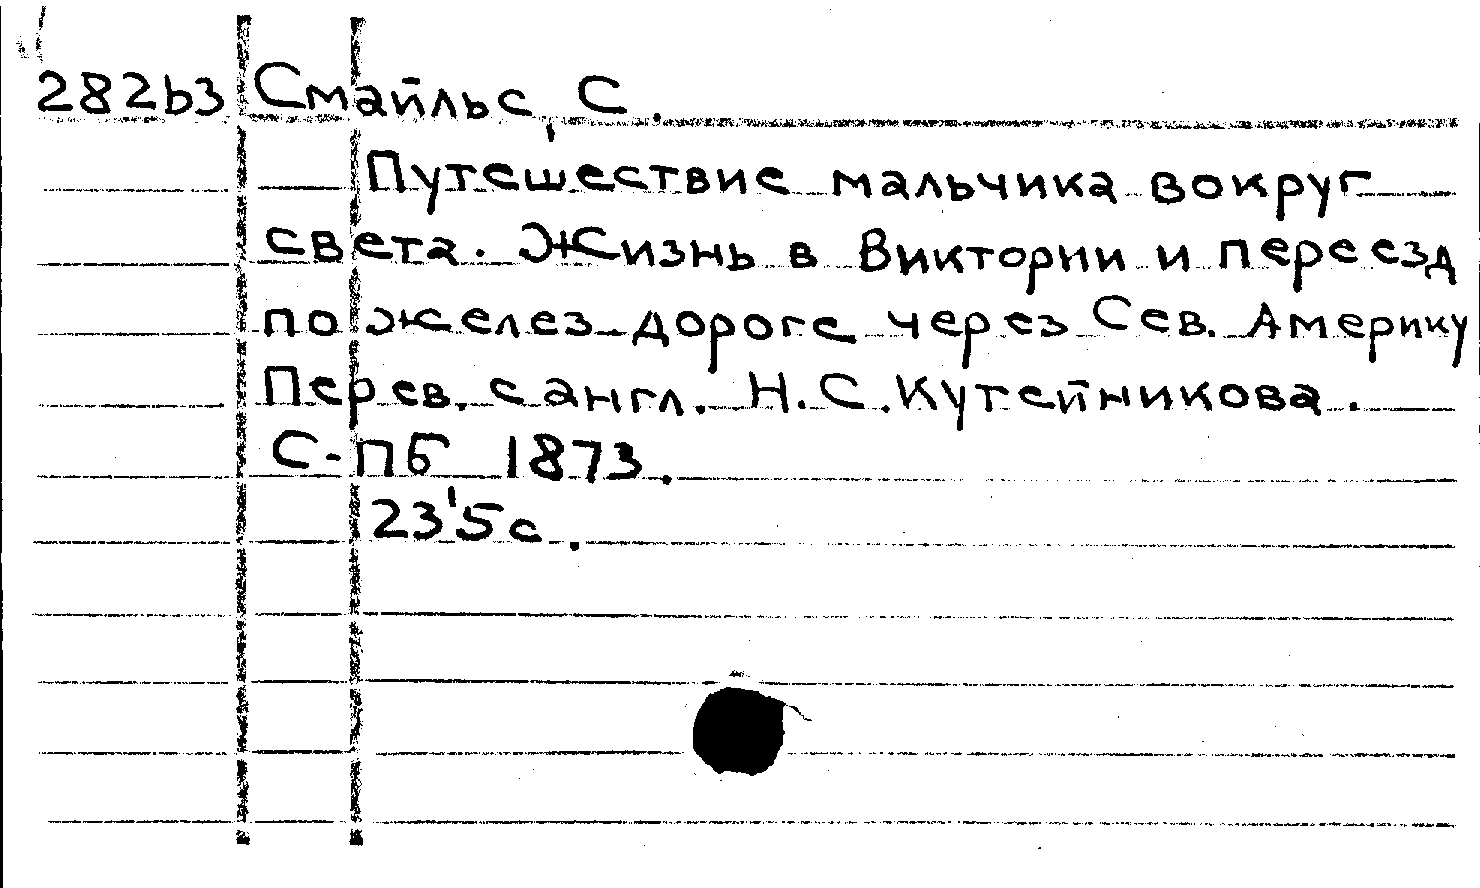 282b3 Смайльс, С.
Путешествие мальчика вокруг
света. Жизнь в Виктории и переезд
по желез. дороге через Сев. Америку
Перев. с англ. Н.С.Кутейникова.
С-ПБ 1873.
23'5с.